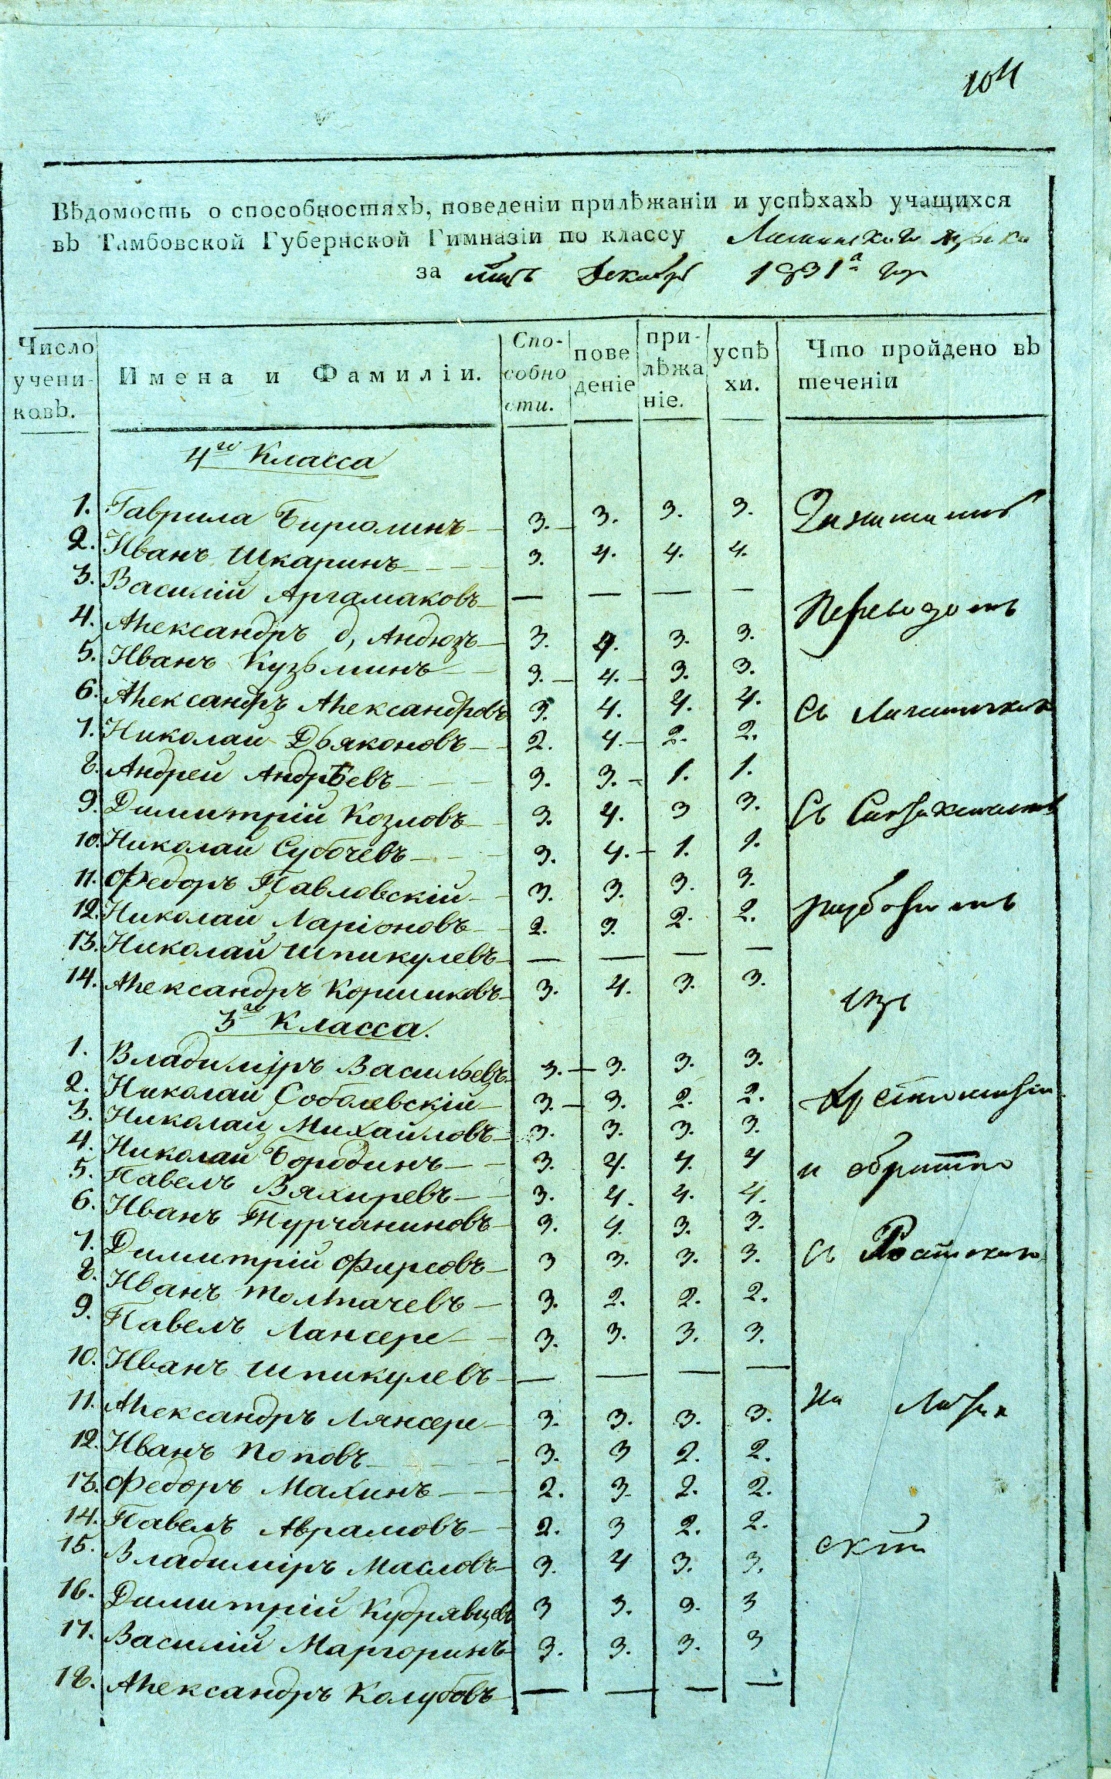 104
Вѣдомость о способностяхъ, поведеніи прилѣжаніи и успѣхахъ учащихся
въ Тамбовской Губернской Гимназіи по классу Латинскаго языка
за Декабрь 1831 года
Число учени- ковъ.
Имена и Фамиліи.
Спо- собно сти.
пове деніе
при- лѣжа ніе.
успѣ хи.
Что пройдено въ теченіи
4го Класса
1. Гаврила Бирюлинъ 3. 3. 3. 3.
2. Иванъ Шкаринъ 3. 4. 4. 4.
3. Василій Аргамаковъ — — — —
4. Александръ д, Андюзъ 3. 4. 3. 3.
5. Иванъ Кузьминъ 3. 4. 3. 3.
Переводомъ
6. Александръ Александровъ 3. 4. 4. 4.
съ Латинскаго
7. Николай Дьяконовъ 2. 4. 2. 2.
8. Андрей Андрѣевъ 3. 3. 1. 1.
9. Димитрій Козловъ 3. 4. 3 3.
съ
10. Николай Субочевъ 3. 4. 1. 1.
11. Федоръ Павловскій 3. 3. 3. 3.
12. Николай Ларіоновъ 2. 3. 2. 2.
13. Николай Шпикулевъ — — — —
14. Александръ Коршиковъ 3. 4. 3. 3.
изъ
3го Класса.
1. Владиміръ Васильевъ 3. 3. 3. 3.
2. Николай Соболевскій 3. 3. 2. 2.
Хрестоматіи
3. Николай Михайловъ 3. 3. 3. 3.
4. Николай Бородинъ 3. 4. 4. 4
и обратно
5. Павелъ Вяхиревъ 3. 4. 4. 4.
6. Иванъ Турчаниновъ 3. 4. 3. 3.
7. Димитрій Фирсовъ 3 3. 3. 3.
съ
8. Иванъ Толмачевъ 3. 2. 2. 2.
9. Павелъ Лансере 3. 3. 3. 3.
10. Иванъ Шпикулевъ — — — —
11. Александръ Лянсере 3. 3. 3. 3.
на Латин
12. Иванъ Поповъ 3. 3 2. 2.
13. Федоръ Малинъ 2. 3. 2. 2.
14. Павелъ Аврамовъ 2. 3 2. 2.
скій
15. Владиміръ Масловъ 3. 4 3. 3.
16. Димитрій Кудрявцевъ 3 3. 3. 3
17. Василій Маргоринъ 3. 3. 3. 3
18. Александръ Колубовъ — — — —